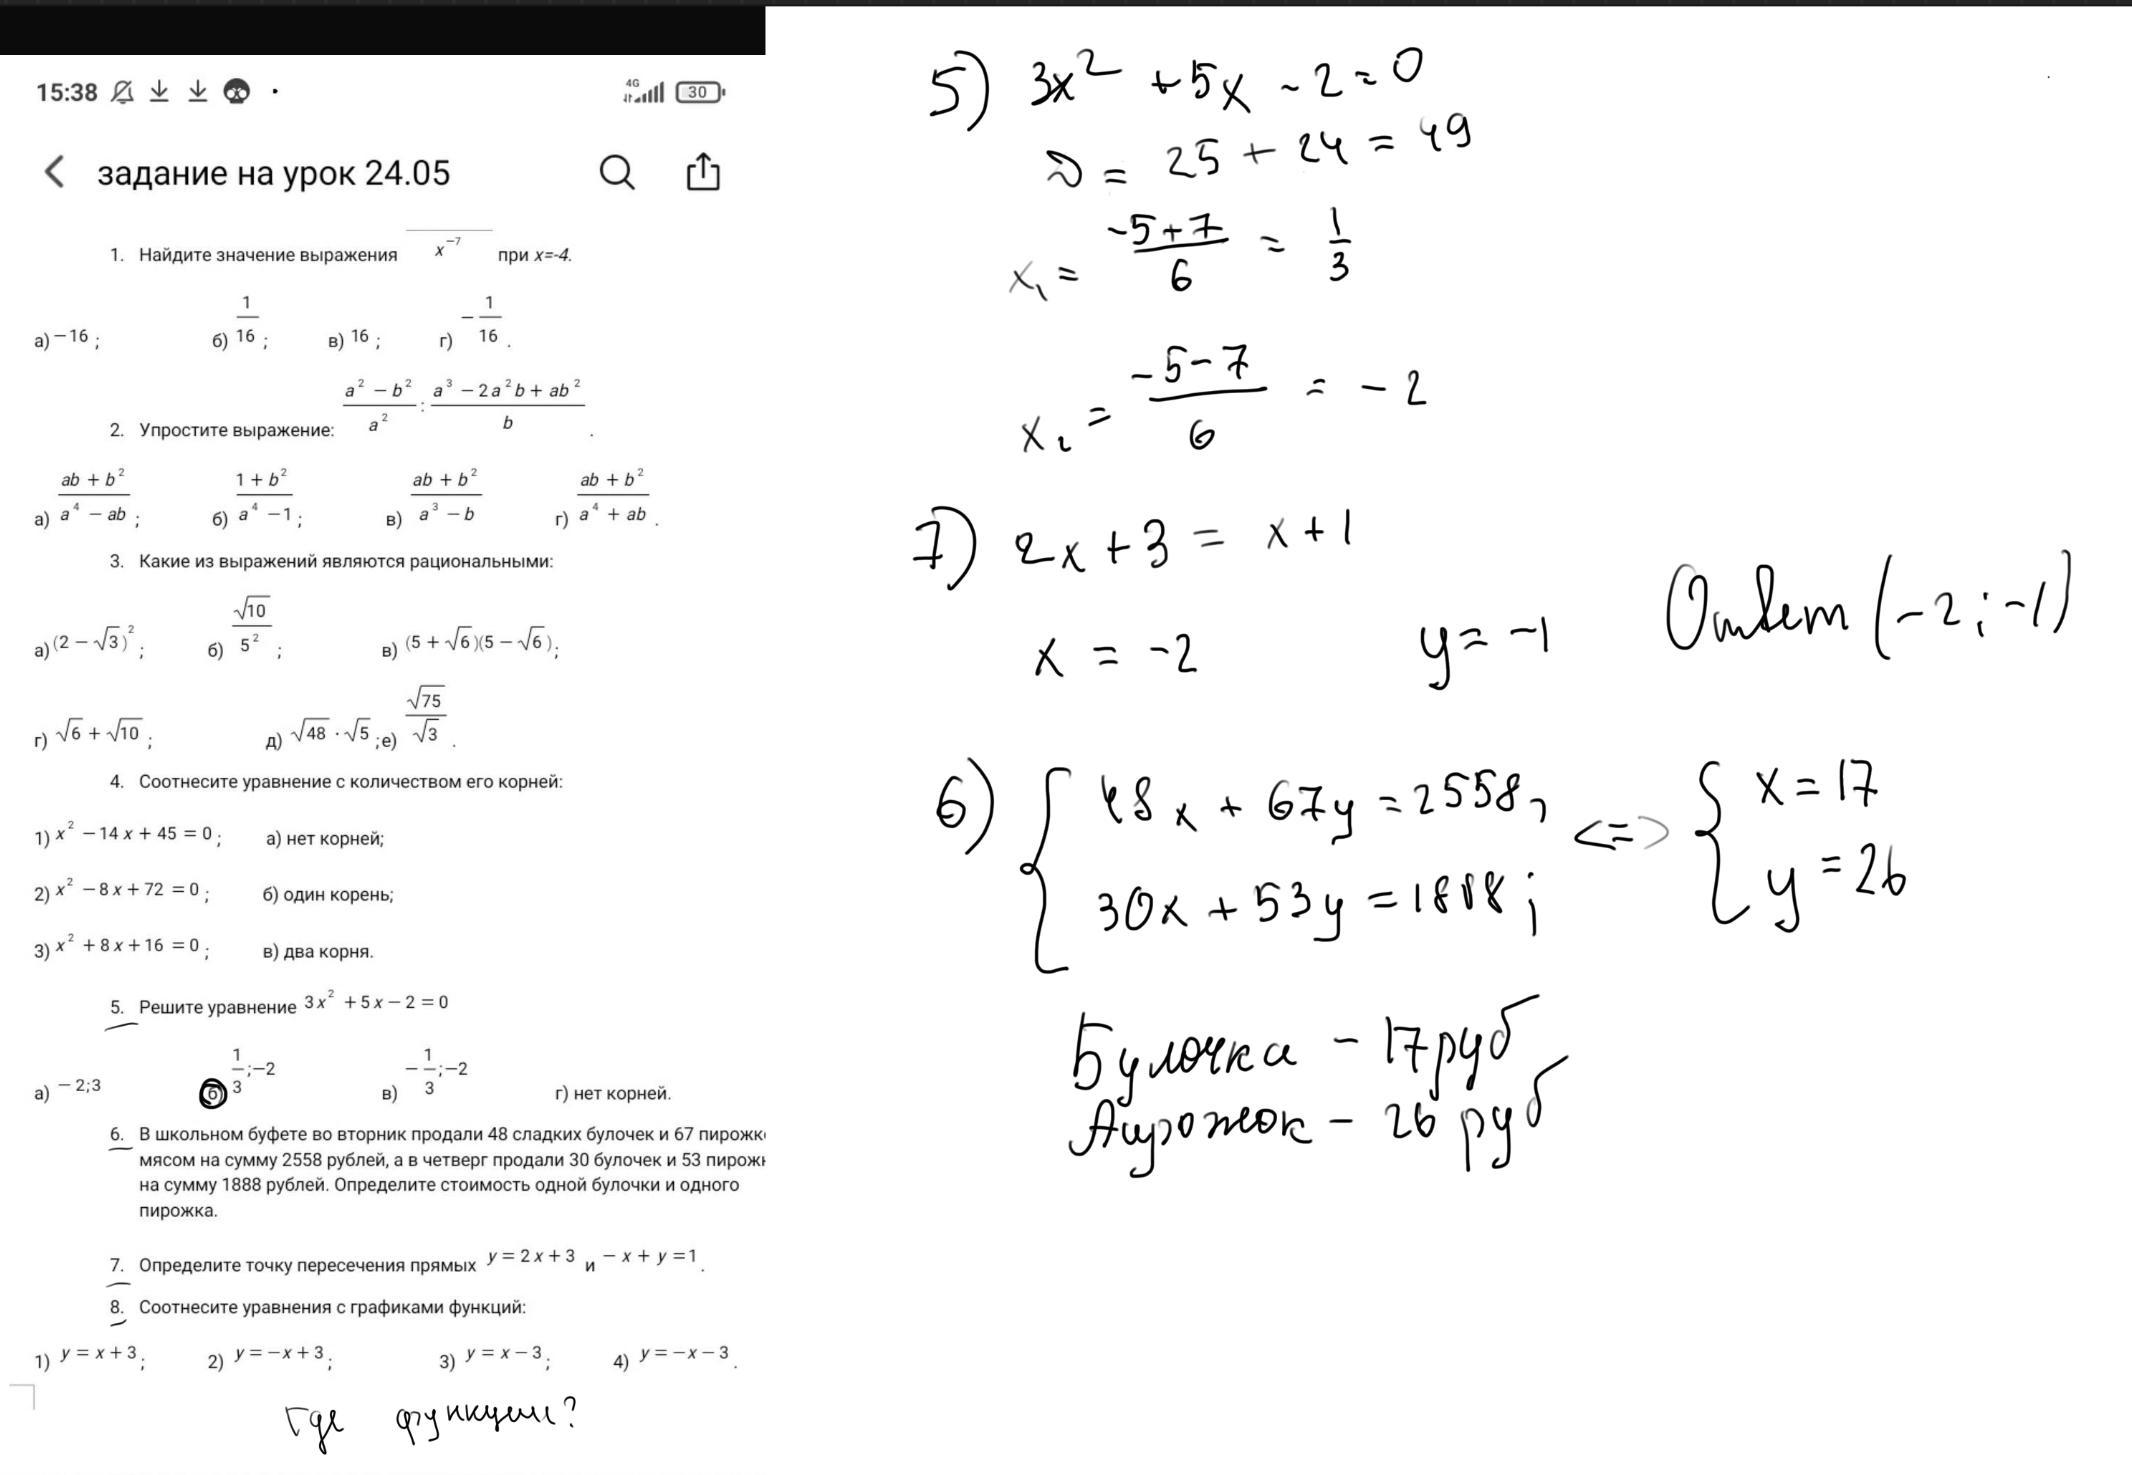 15:38 4G 30
задание на урок 24.05
1. Найдите значение выражения x⁻⁷ при x=-4.
а) −16 ; б) 1/16 ; в) 16 ; г) −1/16 .
2. Упростите выражение: (a² − b²)/a² : (a³ − 2a²b + ab²)/b .
а) (ab + b²)/(a⁴ − ab) ; б) (1 + b²)/(a⁴ − 1) ; в) (ab + b²)/(a³ − b) г) (ab + b²)/(a⁴ + ab) .
3. Какие из выражений являются рациональными:
а) (2 − √3)² ; б) √10/5² ; в) (5 + √6)(5 − √6) ;
г) √6 + √10 ; д) √48 · √5 ; е) √75/√3 .
4. Соотнесите уравнение с количеством его корней:
1) x² − 14x + 45 = 0 ; а) нет корней;
2) x² − 8x + 72 = 0 ; б) один корень;
3) x² + 8x + 16 = 0 ; в) два корня.
5. Решите уравнение 3x² + 5x − 2 = 0
а) −2;3 б) 1/3;−2 в) −1/3;−2 г) нет корней.
6. В школьном буфете во вторник продали 48 сладких булочек и 67 пирожк
мясом на сумму 2558 рублей, а в четверг продали 30 булочек и 53 пирож
на сумму 1888 рублей. Определите стоимость одной булочки и одного
пирожка.
7. Определите точку пересечения прямых y = 2x + 3 и − x + y = 1 .
8. Соотнесите уравнения с графиками функций:
1) y = x + 3 ; 2) y = −x + 3 ; 3) y = x − 3 ; 4) y = −x − 3 .
Где функции?
5) 3x² + 5x - 2 = 0
D = 25 + 24 = 49
x₁ = (-5+7)/6 = 1/3
x₂ = (-5-7)/6 = -2
7) 2x + 3 = x + 1
x = -2 y = -1 Ответ (-2; -1)
6) { 48x + 67y = 2558, <=> { x = 17
30x + 53y = 1888; y = 26
Булочка - 17 руб
Пирожок - 26 руб